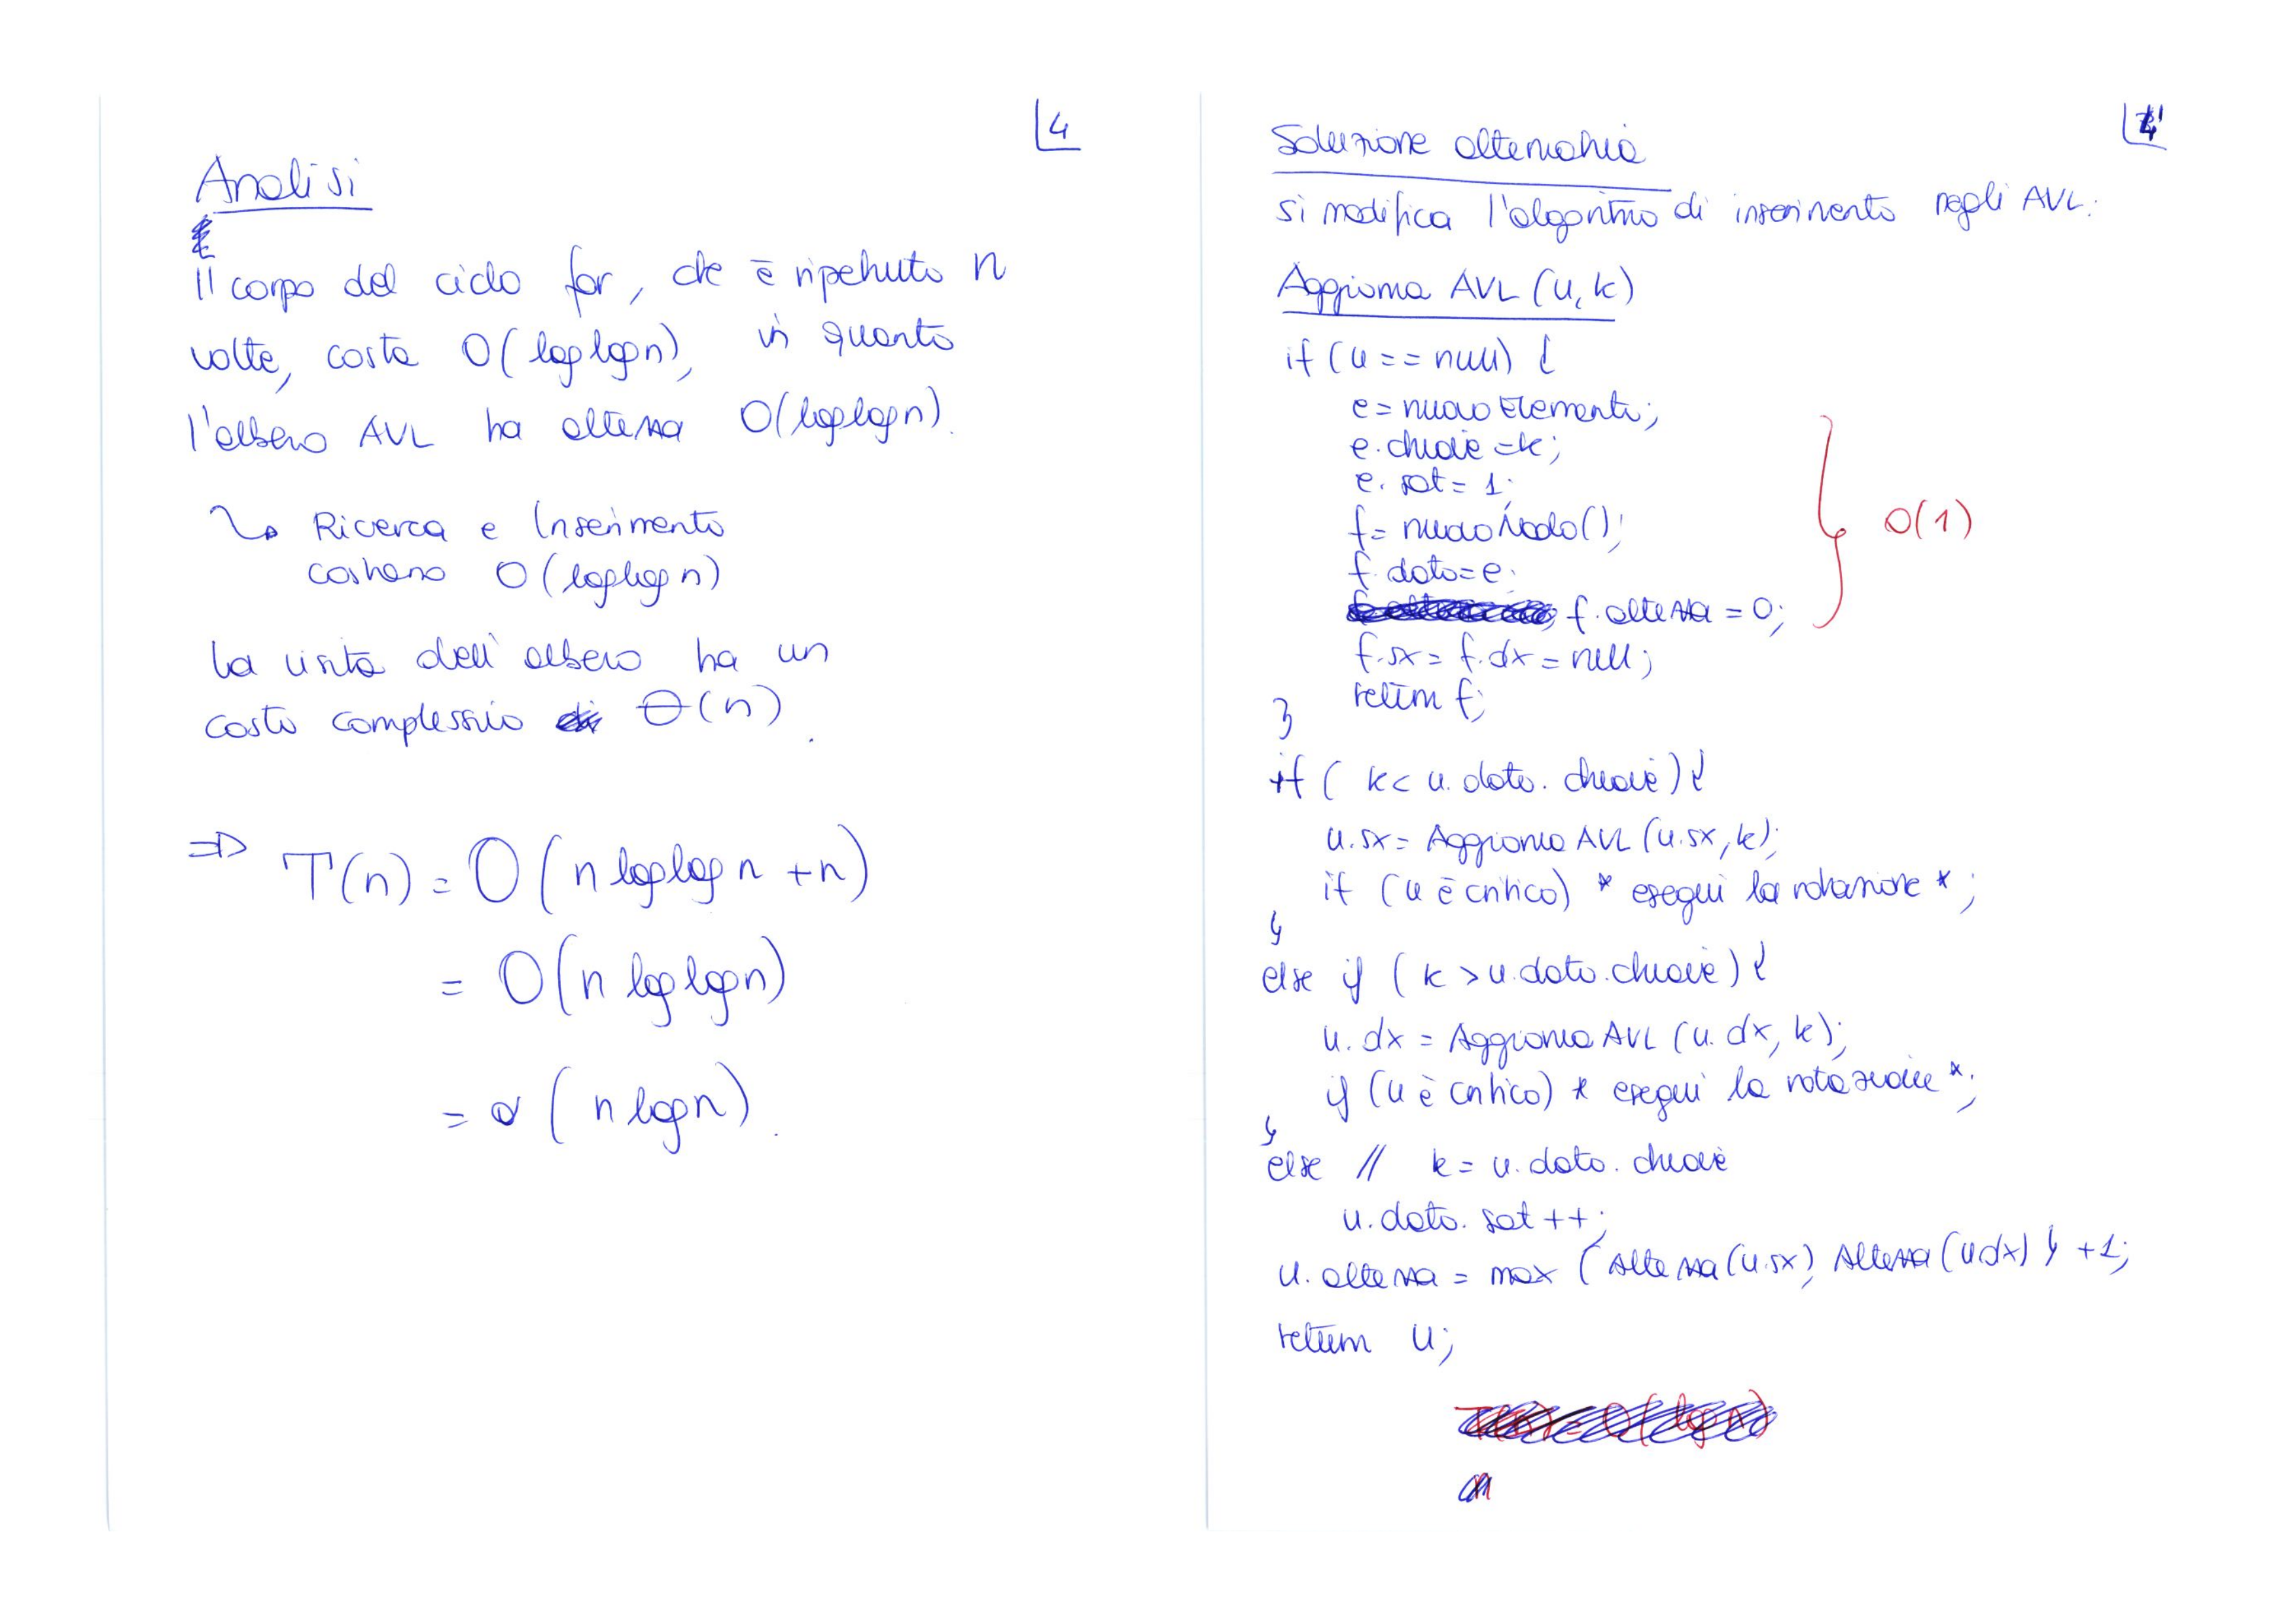 4
Analisi
Il corpo del ciclo for, che è ripetuto n
volte, costa O(loglogn), in quanto
l'albero AVL ha altezza O(loglogn).
↳ Ricerca e Inserimento
costano O(loglogn)
La visita dell'albero ha un
costo complessivo di Θ(n).
⇒ T(n) = O(n loglog n + n)
= O(n loglogn)
= o(n logn).
4'
Soluzione alternativa
si modifica l'algoritmo di inserimento negli AVL:
Aggiorna AVL (u, k)
if (u == null) {
e = nuovo Elemento;
e.chiave = k;
e.sat = 1;
f = nuovo Nodo();
f.dato = e;
f.altezza = 0;
f.sx = f.dx = null;
return f;
}
O(1)
if ( k < u.dato.chiave) {
u.sx = Aggiorna AVL (u.sx, k);
if (u è critico) * esegui la rotazione *;
}
else if ( k > u.dato.chiave) {
u.dx = Aggiorna AVL (u.dx, k);
if (u è critico) * esegui la rotazione *;
}
else // k = u.dato.chiave
u.dato.sat ++;
u.altezza = max (Altezza(u.sx), Altezza(u.dx) } +1;
return u;